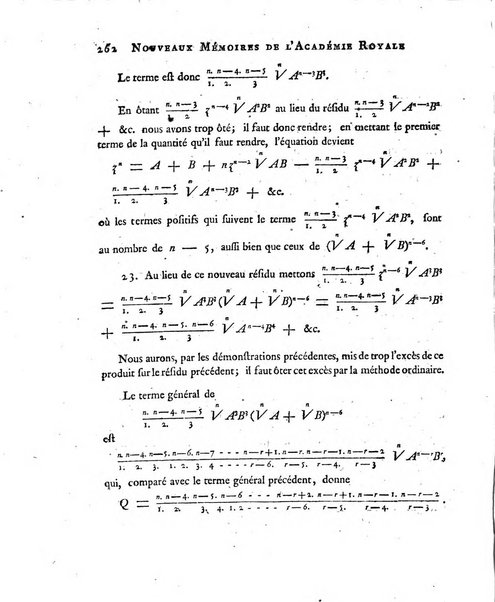 262 NOUVEAUX MÉMOIRES DE L'ACADÉMIE ROYALE
Le terme est donc n. n—4. n—5 / 1. 2. 3 ⁿ√Aⁿ⁻³B³.
En ôtant n. n—3 / 1. 2 zⁿ⁻⁴ ⁿ√A²B² au lieu du résidu n. n—3 / 1. 2 ⁿ√Aⁿ⁻²B²
+ &c. nous avons trop ôté; il faut donc rendre; en mettant le premier
terme de la quantité qu'il faut rendre, l'équation devient
zⁿ = A + B + nzⁿ⁻² ⁿ√AB — n. n—3 / 1. 2 zⁿ⁻⁴ ⁿ√A²B² +
n. n—4. n—5 / 1. 2. 3 ⁿ√Aⁿ⁻³B³ + &c.
où les termes positifs qui suivent le terme n. n—3 / 1. 2 zⁿ⁻⁴ ⁿ√A²B², sont
au nombre de n — 5, aussi bien que ceux de (ⁿ√A + ⁿ√B)ⁿ⁻⁶.
23. Au lieu de ce nouveau résidu mettons n. n—4. n—5 / 1. 2. 3 zⁿ⁻⁶ ⁿ√A³B³
= n. n—4. n—5 / 1. 2. 3 ⁿ√A³B³(ⁿ√A + ⁿ√B)ⁿ⁻⁶ = n. n—4. n—5 / 1. 2. 3 ⁿ√Aⁿ⁻³B³
+ n. n—4. n—5. n—6 / 1. 2. 3 ⁿ√Aⁿ⁻⁴B⁴ + &c.
Nous aurons, par les démonstrations précédentes, mis de trop l'excès de ce
produit sur le résidu précédent; il faut ôter cet excès par la méthode ordinaire.
Le terme général de
n. n—4. n—5 / 1. 2. 3 ⁿ√A³B³(ⁿ√A + ⁿ√B)ⁿ⁻⁶
est
n. n—4. n—5. n—6. n—7 - - - n—r+1. n—r. n—r—1. n—r—2 / 1. 2. 3. 1. 2. 3. 4 - - - - r—6. r—5. r—4. r—3 ⁿ√Aⁿ⁻ʳBʳ,
qui, comparé avec le terme général précédent, donne
Q = n. n—4. n—5. n—6 - - - - n—r+2. n—r+1. n—r—1. n—r—2 / 1. 2. 3. 4. 1. 2 - - - - - r—6. r—5. r—4. r—3.